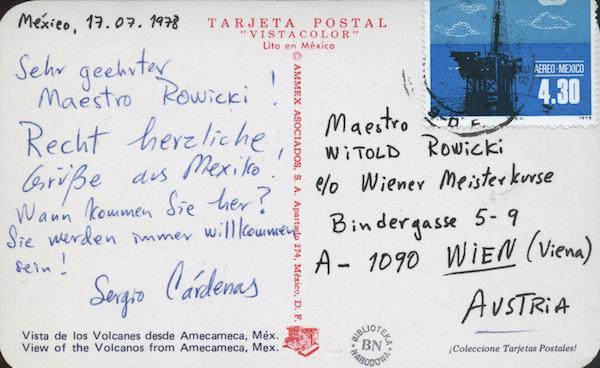 México, 17.07.1978
Sehr geehrter
Maestro Rowicki!
Recht herzliche
Grüße aus Mexiko!
Wann kommen Sie her?
Sie werden immer willkommen
sein!
Sergio Cárdenas
Vista de los Volcanes desde Amecameca, Méx.
View of the Volcanos from Amecameca, Mex.
TARJETA POSTAL
"VISTACOLOR"
Lito en México
© AMMEX ASOCIADOS, S. A. Apartado 274, México, D. F.
AEREO-MEXICO
4.30
1978
D. F.
Maestro
WITOLD ROWICKI
c/o Wiener Meisterkurse
Bindergasse 5-9
A- 1090 WIEN (Viena)
AUSTRIA
BIBLIOTEKA
BN
NARODOWA
¡Coleccione Tarjetas Postales!